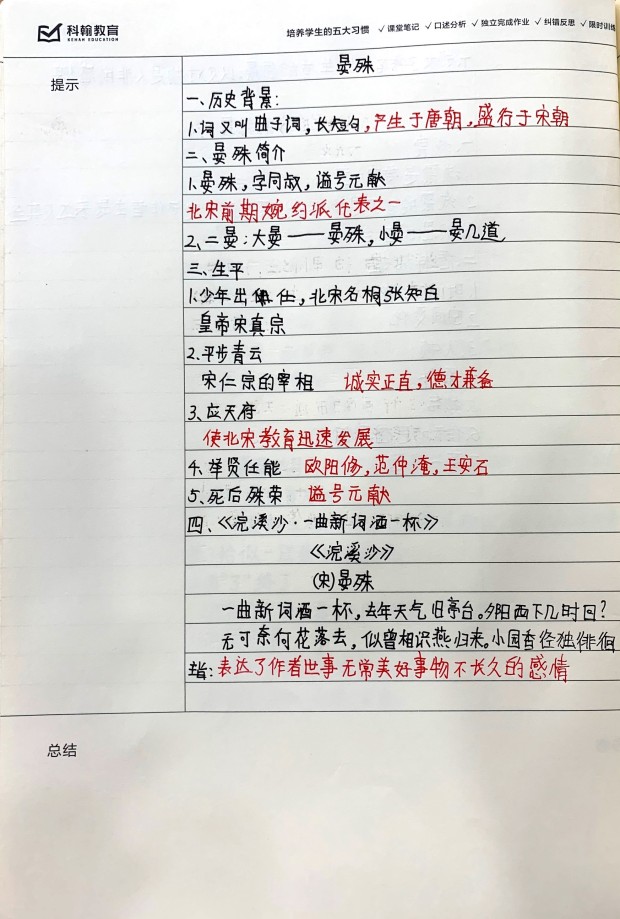 科翰教育
KEHAN EDUCATION
培养学生的五大习惯 ✓课堂笔记 ✓口述分析 ✓独立完成作业 ✓纠错反思 ✓限时训练
提示
晏殊
一、历史背景:
1.词又叫曲子词,长短句,产生于唐朝,盛行于宋朝
二、晏殊简介
1.晏殊,字同叔,谥号元献
北宋前期婉约派代表之一
2.二晏:大晏——晏殊,小晏——晏几道
三、生平
1.少年出仕,北宋名相张知白
皇帝宋真宗
2.平步青云
宋仁宗的宰相 诚实正直,德才兼备
3.应天府
使北宋教育迅速发展
4.举贤任能 欧阳修,范仲淹,王安石
5.死后殊荣 谥号元献
四、《浣溪沙·一曲新词酒一杯》
《浣溪沙》
(宋)晏殊
一曲新词酒一杯,去年天气旧亭台。夕阳西下几时回?
无可奈何花落去,似曾相识燕归来。小园香径独徘徊
主旨:表达了作者世事无常美好事物不长久的感情
总结